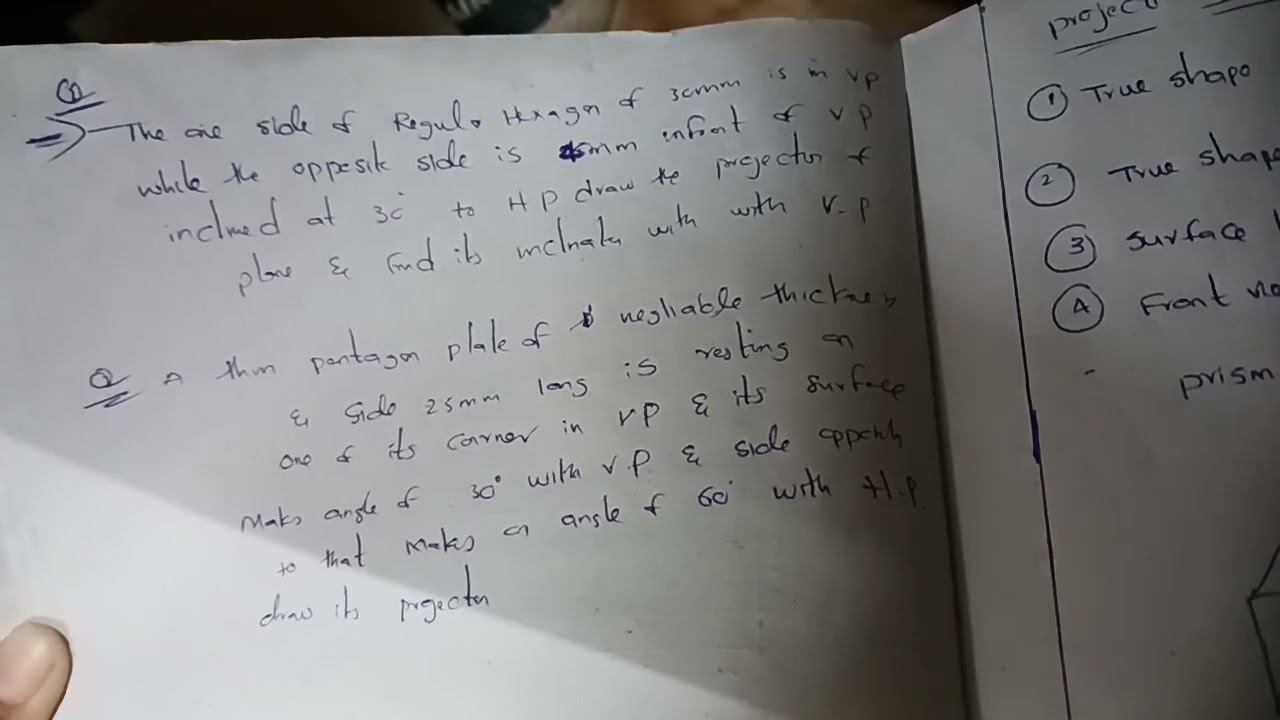 Q
The one side of Regula Hexagn of 30mm is in VP
while the opposite side is mm infront of VP
inclined at 30° to HP draw the projector of
plane & find its inclnatn with with V.P
Q A thin pentagon plate of negliable thickness
& side 25mm long is resting on
one of its corner in VP & its surface
Maks angle of 30° with V.P & side oppositi
to that makes an angle of 60° with H.P.
draw its projectn
project
① True shape
② True shape
③ Surface
④ Front
prism